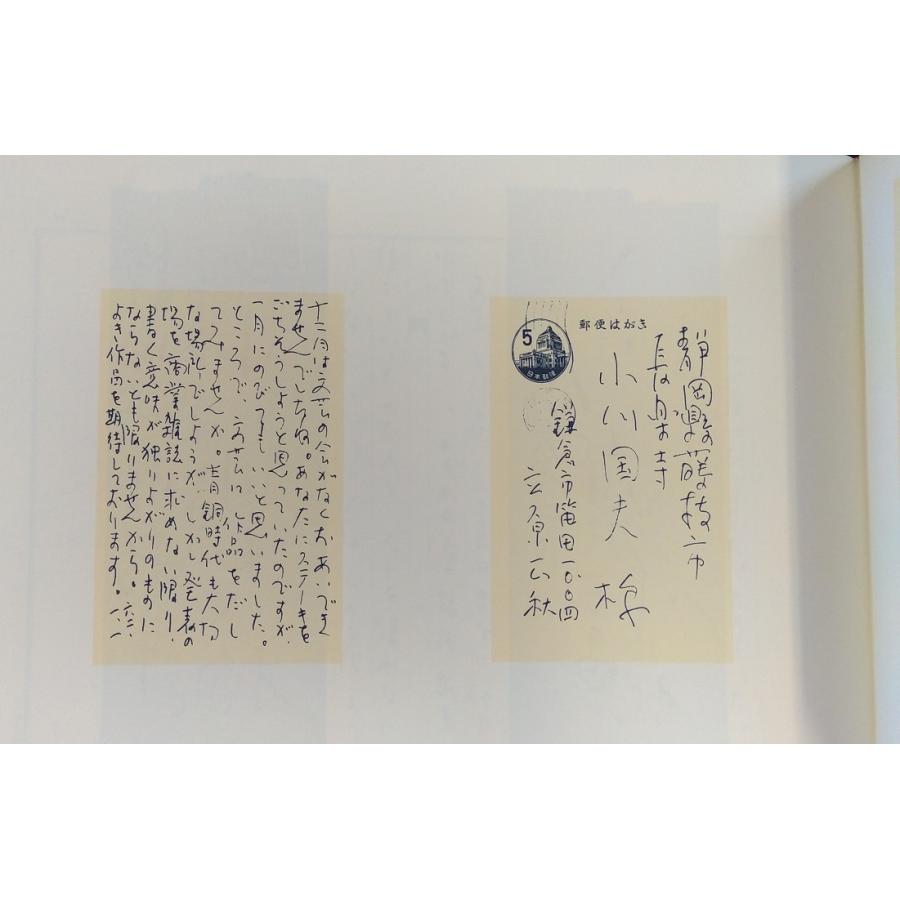 郵便はがき
5
日本郵便
静岡縣藤枝市
長楽寺
小川国夫 様
鎌倉市笛田一〇〇四
立原正秋
十二月は文芸の会がなくおあいでき
ませんでしたね。あなたにステーキを
ごちそうしようと思っていたのですが、
一月にのびてもいいと思いました。
ところで、文芸に作品をだし
てみませんか。青銅時代も大切
な場所でしょうが、しかし発表の
場を商業雑誌に求めない限り、
書く意味が独りよがりのものに
ならないとも限りませんから。
よき作品を期待しております。